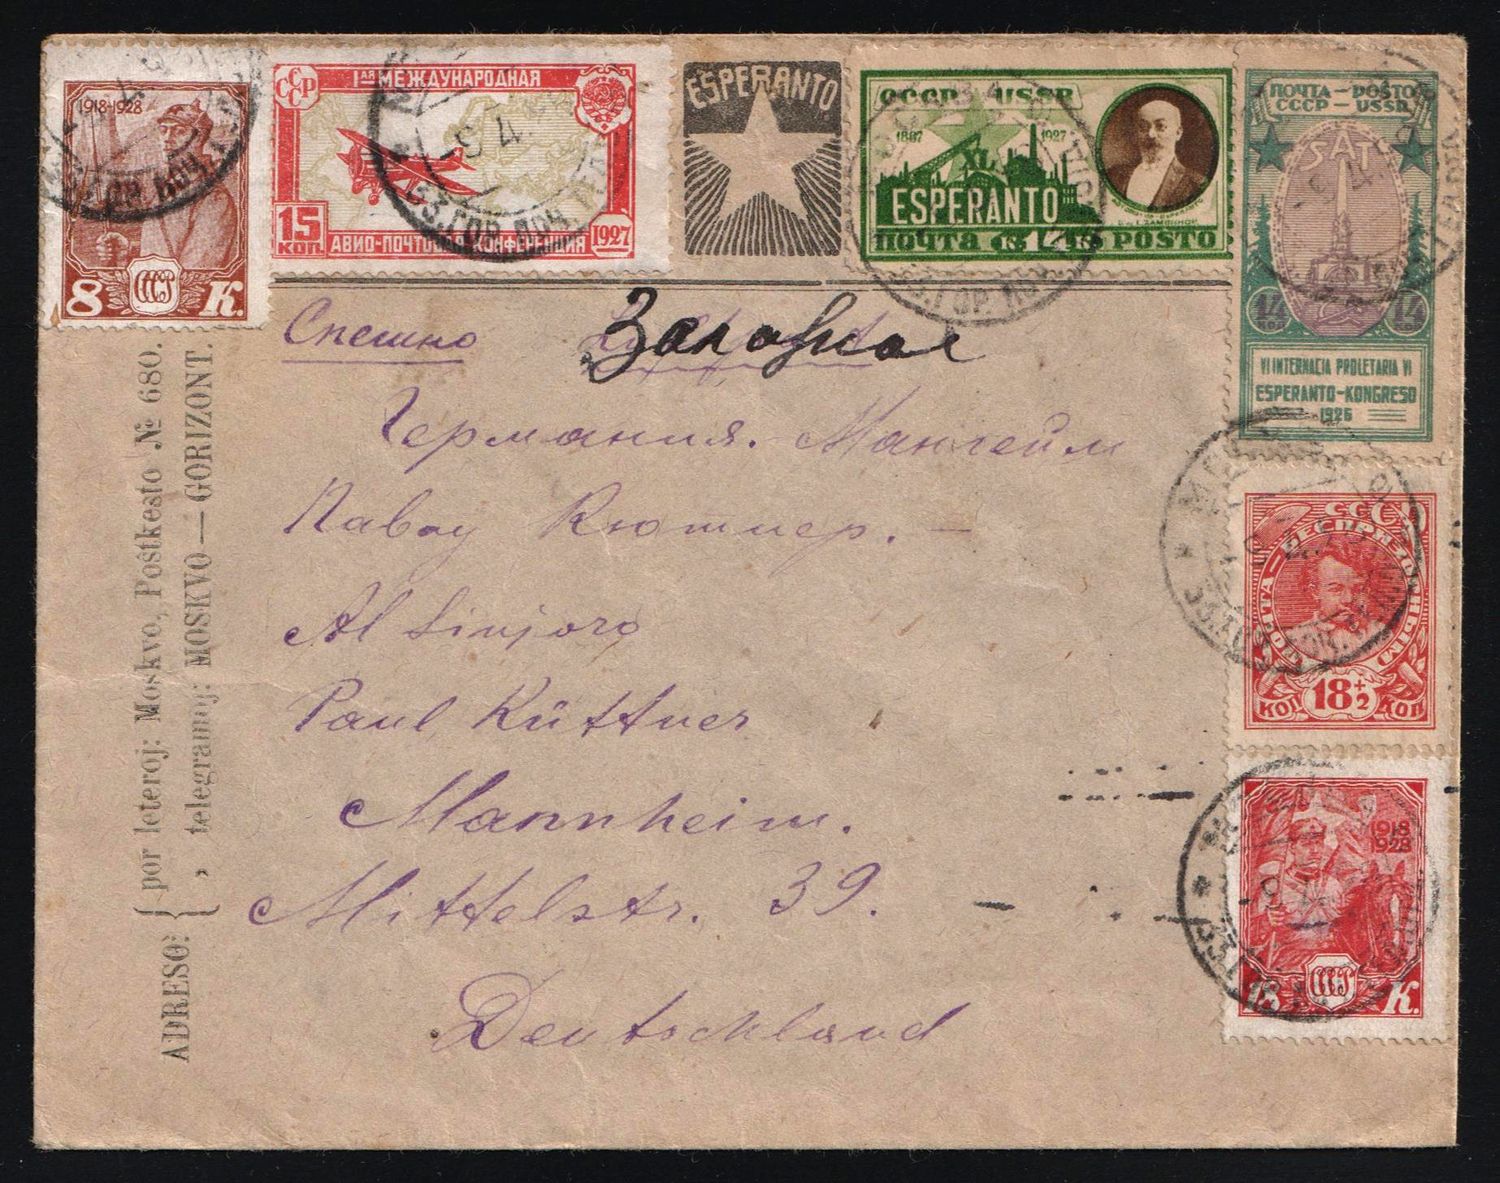 1918-1928
8 К.
СССР
1АЯ МЕЖДУНАРОДНАЯ
15 КОП.
АВИО-ПОЧТОВАЯ КОНФЕРЕНЦИЯ 1927
ESPERANTO
СССР USSR
1887 1927
XL
ESPERANTO
ПОЧТА К. 14 К. POSTO
ПОЧТА — POŜTO
СССР — USSR
SAT
14 КОП 14 КОП
VI INTERNACIA PROLETARIA VI
ESPERANTO-KONGRESO
1926
Спешно Заказное
Германия. Мангейм
Павоу Кютнер. —
Al Sinjoro
Paul Küttner
Mannheim.
Mittelstr. 39. —
Deutschland
ADRESO: { por leteroj: Moskvo, Poŝtkesto № 680.
, telegramoj: MOSKVO — GORIZONT.
СССР
ПОЧТА - БЕСПРИЗОРНЫМ
КОП 18+2 КОП
1918
1928
18 К.